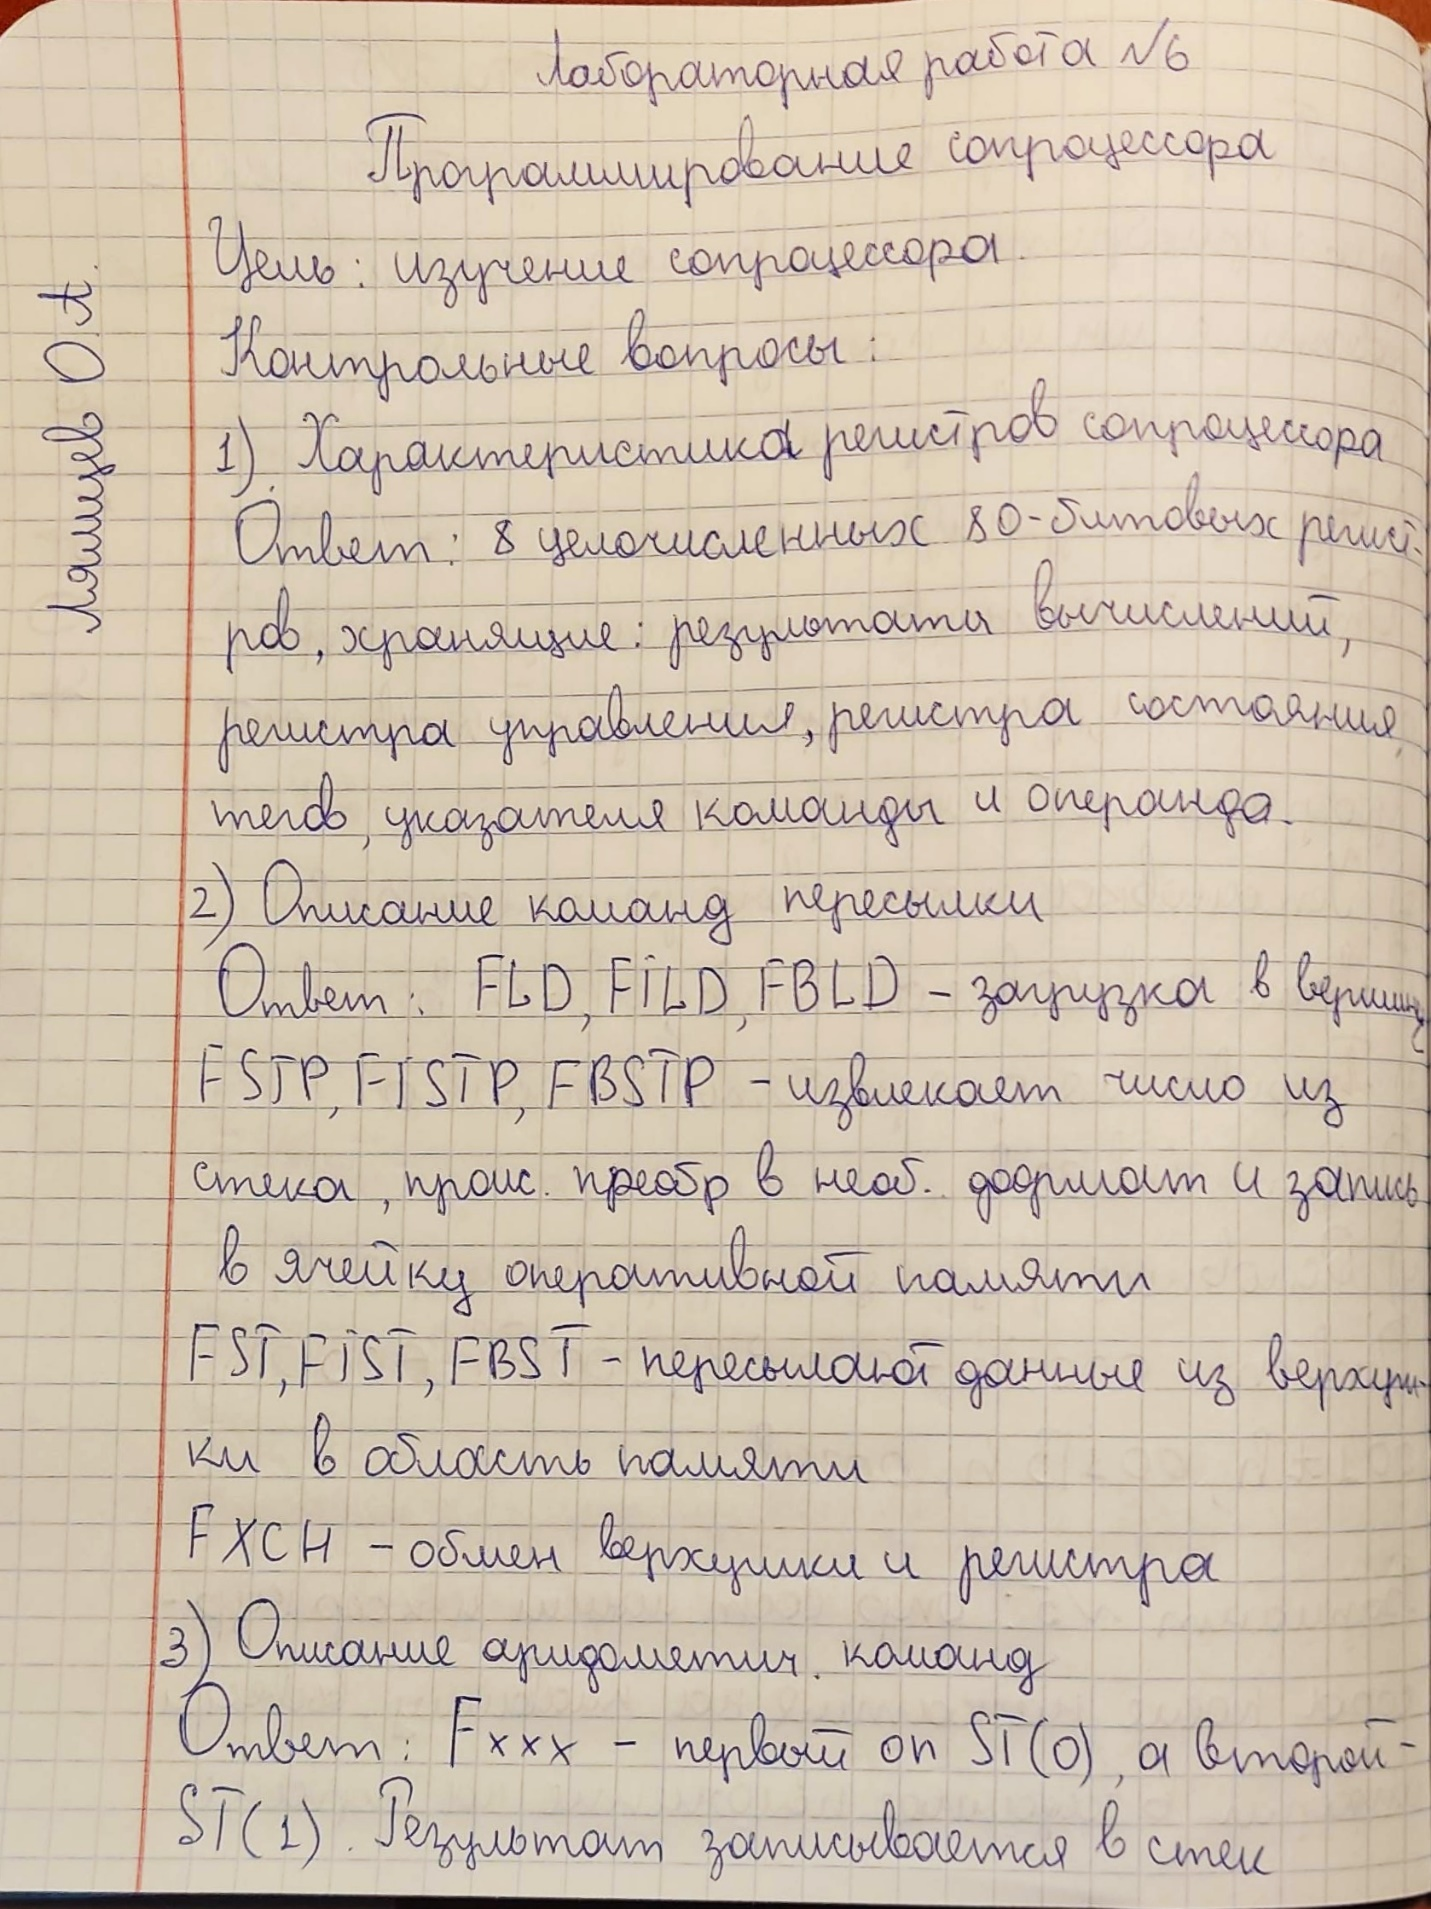 Лабораторная работа №6
Программирование сопроцессора
Цель: изучение сопроцессора.
Контрольные вопросы:
1) Характеристика регистров сопроцессора
Ответ: 8 целочисленных 80-битовых регист-
ров, хранящие: результаты вычислений,
регистра управления, регистра состояния,
тегов, указателя команды и операнда.
2) Описание команд пересылки
Ответ: FLD, FILD, FBLD – загрузка в вершину
FSTP, FISTP, FBSTP – извлекает число из
стека, проис. преобр в необ. формат и запись
в ячейку оперативной памяти
FST, FIST, FBST – пересылают данные из верхуш-
ки в область памяти
FXCH – обмен верхушки и регистра
3) Описание арифметич. команд
Ответ: Fxxx – первый оп ST(0), а второй –
ST(1). Результат записывается в стек
Лямцев О.А.